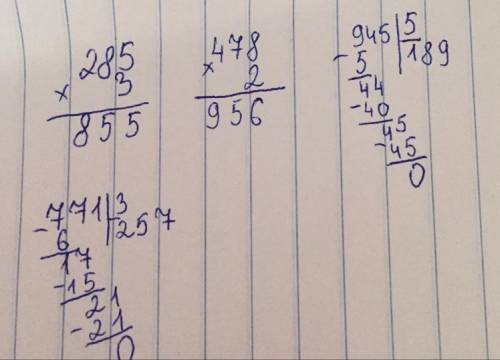 285
× 3
855
× 478
2
956
- 945 | 5
5 189
44
- 40
45
- 45
0
- 771 | 3
6 257
17
- 15
21
- 21
0